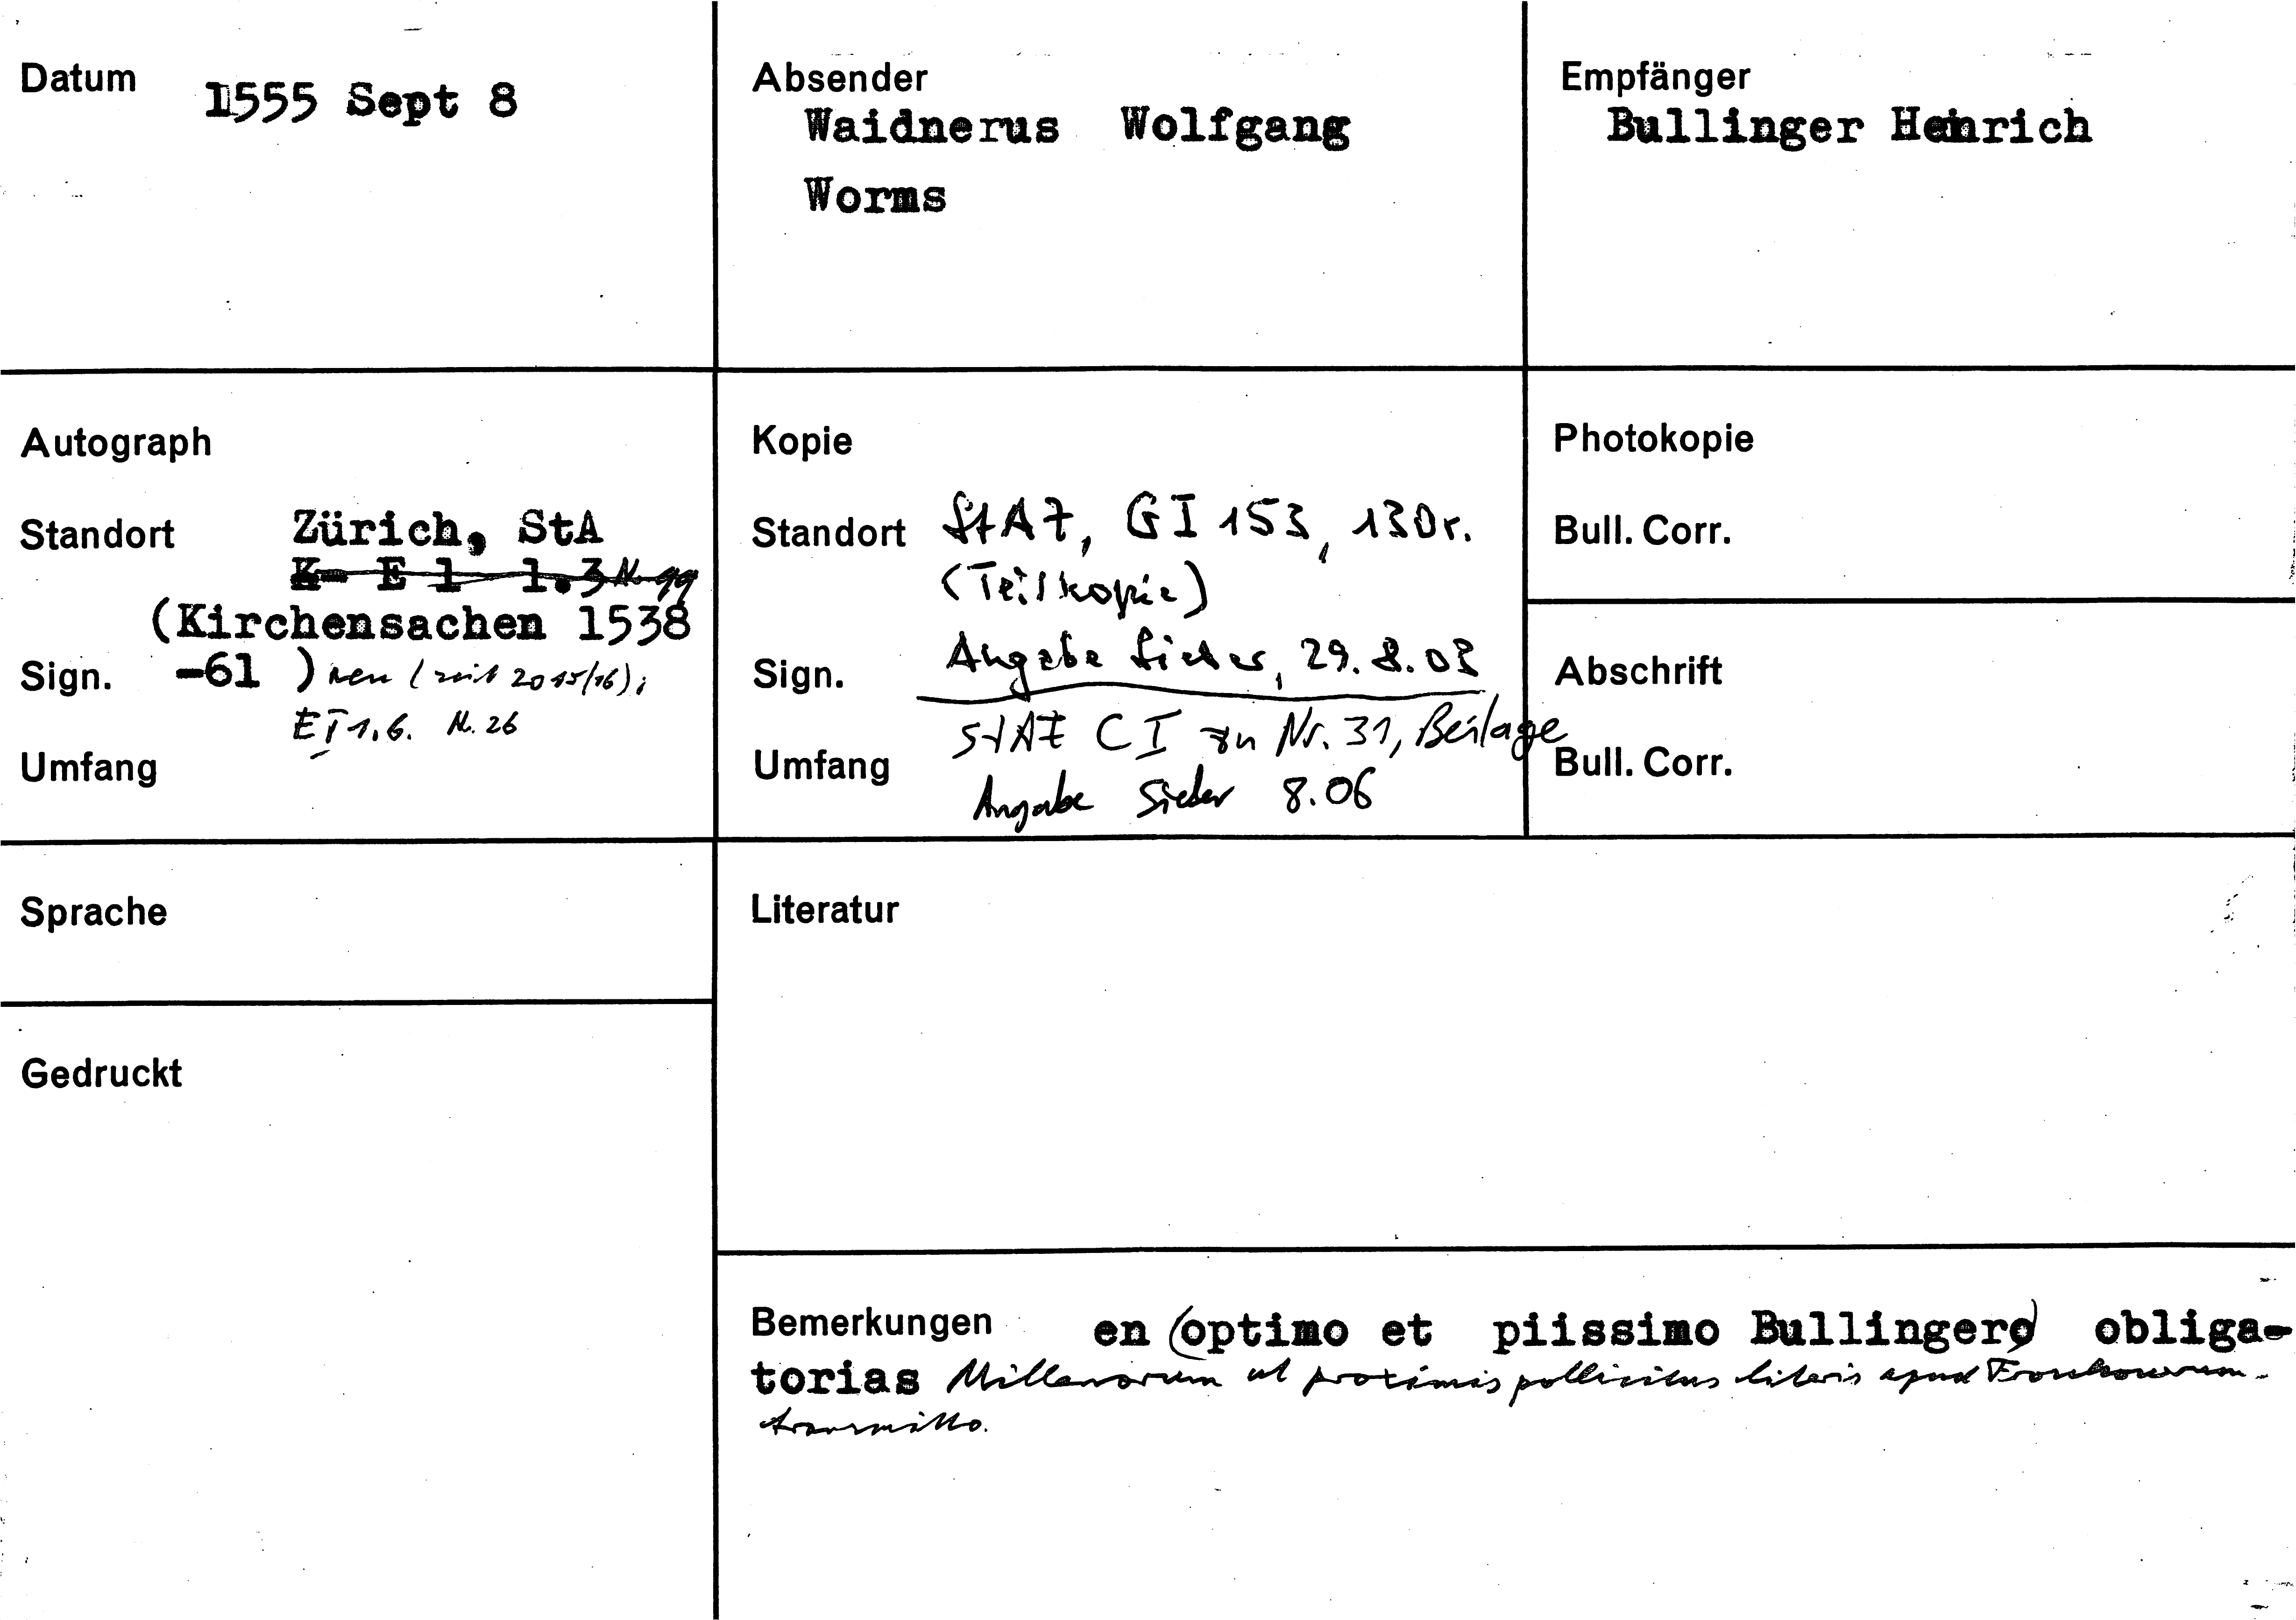 Datum 1555 Sept 8
Absender
Waidnerus Wolfgang
Worms
Empfänger
Bullinger Heinrich
Autograph
Standort Zürich, StA
K- E l 1.3 N. 99
(Kirchensachen 1538
Sign. -61 ) neu (seit 2015/16);
E I 1.6. N. 26
Umfang
Kopie
Standort StAZ, G I 153, 130r.
(Teilkopie)
Sign. Angabe Sieber, 29.8.03
StAZ C I zu Nr. 31, Beilage
Umfang
Angabe Sieber 8.06
Photokopie
Bull. Corr.
Abschrift
Bull. Corr.
Sprache
Gedruckt
Literatur
Bemerkungen en (optimo et piissimo Bullingero) obliga-
torias ut proximis pollicitus literis apud
transmitto.